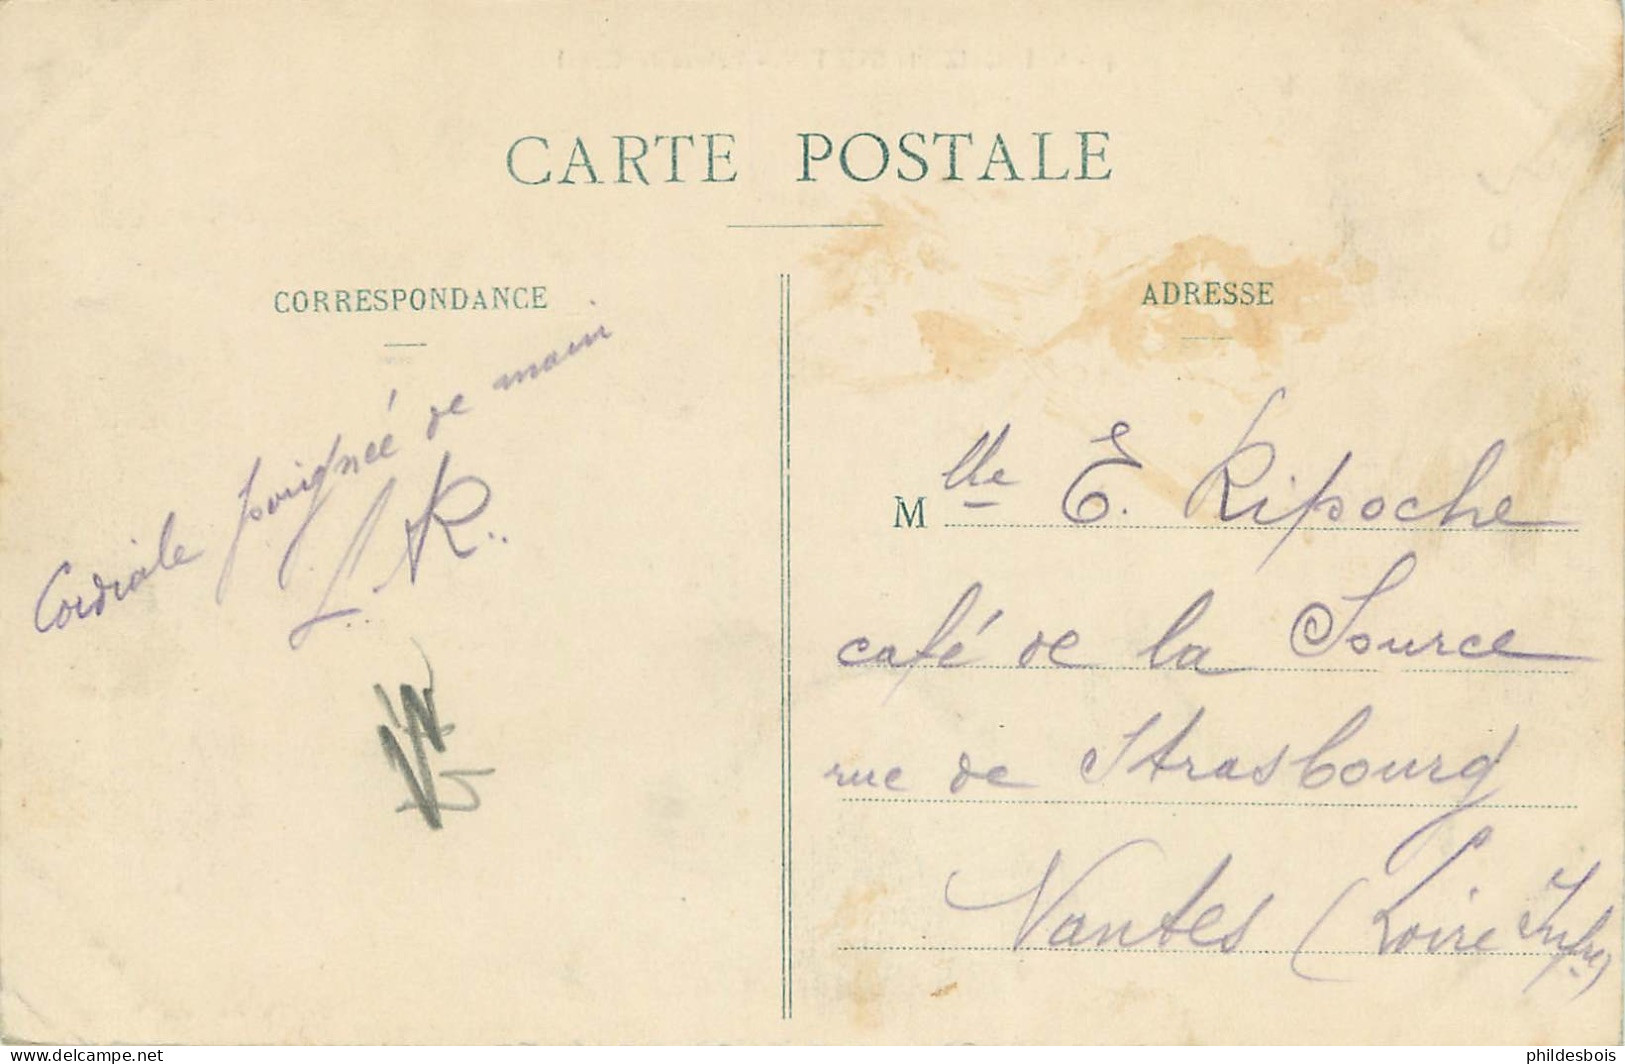 CARTE POSTALE
CORRESPONDANCE
Cordiale poignée de main
L. R..
ADRESSE
Mlle E. Ripoche
café de la Source
rue de Strasbourg
Nantes (Loire Infre)
delcampe.net
phildesbois